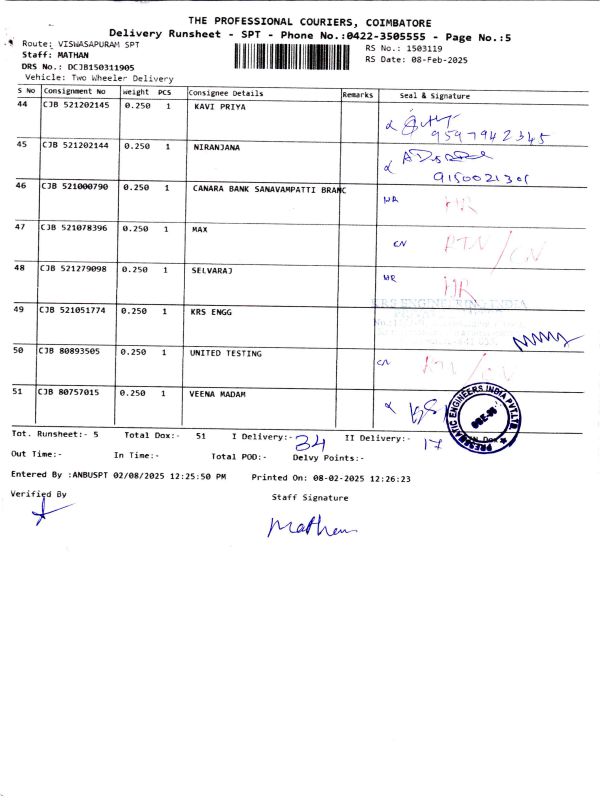 THE PROFESSIONAL COURIERS, COIMBATORE
Delivery Runsheet - SPT - Phone No.:0422-3505555 - Page No.:5
Route: VISWASAPURAM SPT
RS No.: 1503119
Staff: MATHAN
RS Date: 08-Feb-2025
DRS No.: DCJB150311905
Vehicle: Two Wheeler Delivery
S No Consignment No Weight PCS Consignee Details Remarks Seal & Signature
44 CJB 521202145 0.250 1 KAVI PRIYA
9597942345
45 CJB 521202144 0.250 1 NIRANJANA
9150021301
46 CJB 521000790 0.250 1 CANARA BANK SANAVAMPATTI BRANC NR NR
47 CJB 521078396 0.250 1 MAX CN RTN / CN
48 CJB 521279098 0.250 1 SELVARAJ NR NR
KRS ENGINEERING INDIA
49 CJB 521051774 0.250 1 KRS ENGG
50 CJB 80893505 0.250 1 UNITED TESTING CN
51 CJB 80757015 0.250 1 VEENA MADAM
ENGINEERS INDIA PVT.LTD.
Tot. Runsheet:- 5 Total Dox:- 51 I Delivery:- 34 II Delivery:- 17
Out Time:- In Time:- Total POD:- Delvy Points:-
Entered By :ANBUSPT 02/08/2025 12:25:50 PM Printed On: 08-02-2025 12:26:23
Verified By Staff Signature
Mathan